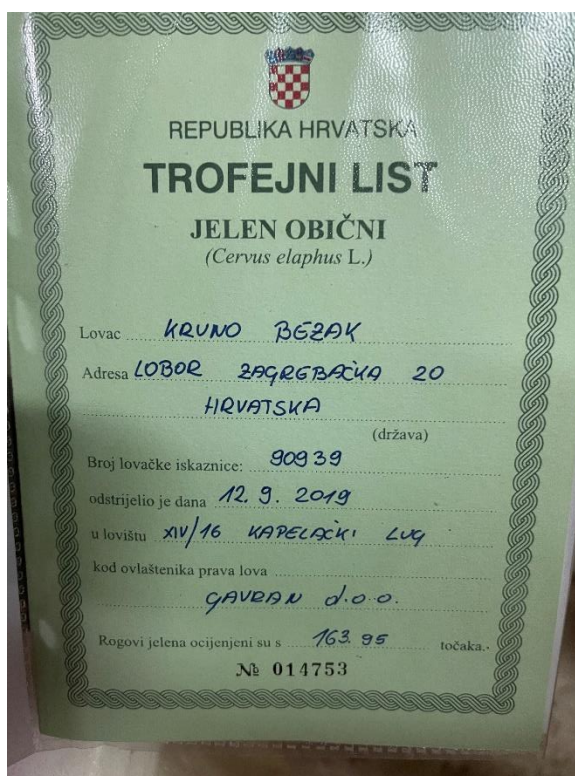 REPUBLIKA HRVATSKA
TROFEJNI LIST
JELEN OBIČNI
(Cervus elaphus L.)
Lovac KRUNO BEZAK
Adresa LOBOR ZAGREBAČKA 20
HRVATSKA
(država)
Broj lovačke iskaznice: 90939
odstrijelio je dana 12. 9. 2019
u lovištu XIV/16 KAPELAČKI LUG
kod ovlaštenika prava lova
GAVRAN d.o.o.
Rogovi jelena ocijenjeni su s 163.95 točaka.
№ 014753